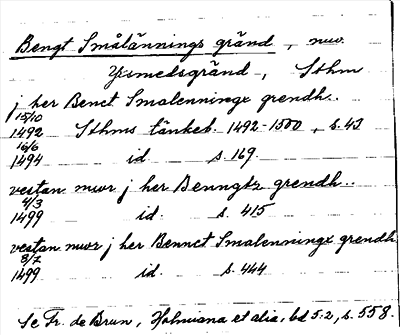 Bengt Smålännings gränd, nuv.
Yxsmedsgränd, Sthm
j her Benct Smalenningx grendh..
15/10
1492 Sthms tänkeb. 1492-1500, s. 43
16/6
1494 id s. 169.
vestan mwr j her Benngtz grendh..
4/3
1499 id. s. 415
vestan mwr j her Bennct Smalenningx grendh
8/7
1499 id. s. 444
Se Fr. de Brun, Holmiana et alia, bd 5:2, s. 558.